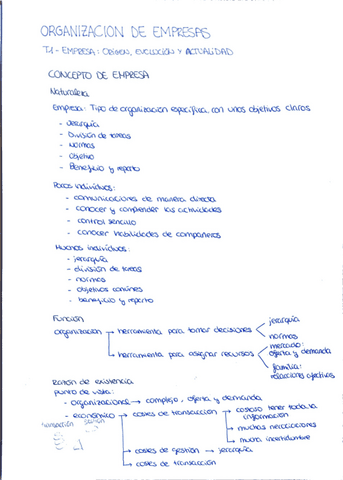 ORGANIZACION DE EMPRESAS
T.1 - EMPRESA: ORIGEN, EVOLUCIÓN Y ACTUALIDAD
CONCEPTO DE EMPRESA
Naturaleza
Empresa: Tipo de organización específica, con unos objetivos claros
- Jerarquía
- División de tareas
- Normas
- Objetivo
- Beneficio y reparto
Pocos individuos:
- comunicaciones de manera directa
- conocer y comprender las actividades
- control sencillo
- conocer habilidades de compañeros
Muchos individuos:
- jerarquía
- división de tareas
- normas
- objetivos comunes
- beneficio y reparto
Función
organización → herramienta para tomar decisiones < jerarquía
normas
→ herramienta para asignar recursos < mercado:
oferta y demanda
familia:
relaciones afectivas
Razón de existencia
punto de vista:
- organizacional → complejo, oferta y demanda
- económico → costes de transacción → costoso tener toda la
información
→ muchas negociaciones
→ mucha incertidumbre
→ costes de gestión → jerarquía
→ costes de transacción